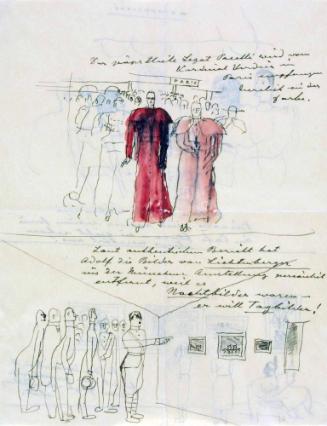 Der päpstliche Legat Pacelli wird vom
Kardinal Verdier in
PARIS
Paris empfangen
in der
Farbe.
Laut authentischem Bericht hat
Adolf die Bilder von Lichtenberger
aus der Münchener Ausstellung
entfernt, weil es
Nachtbilder waren –
er will Tagbilder!